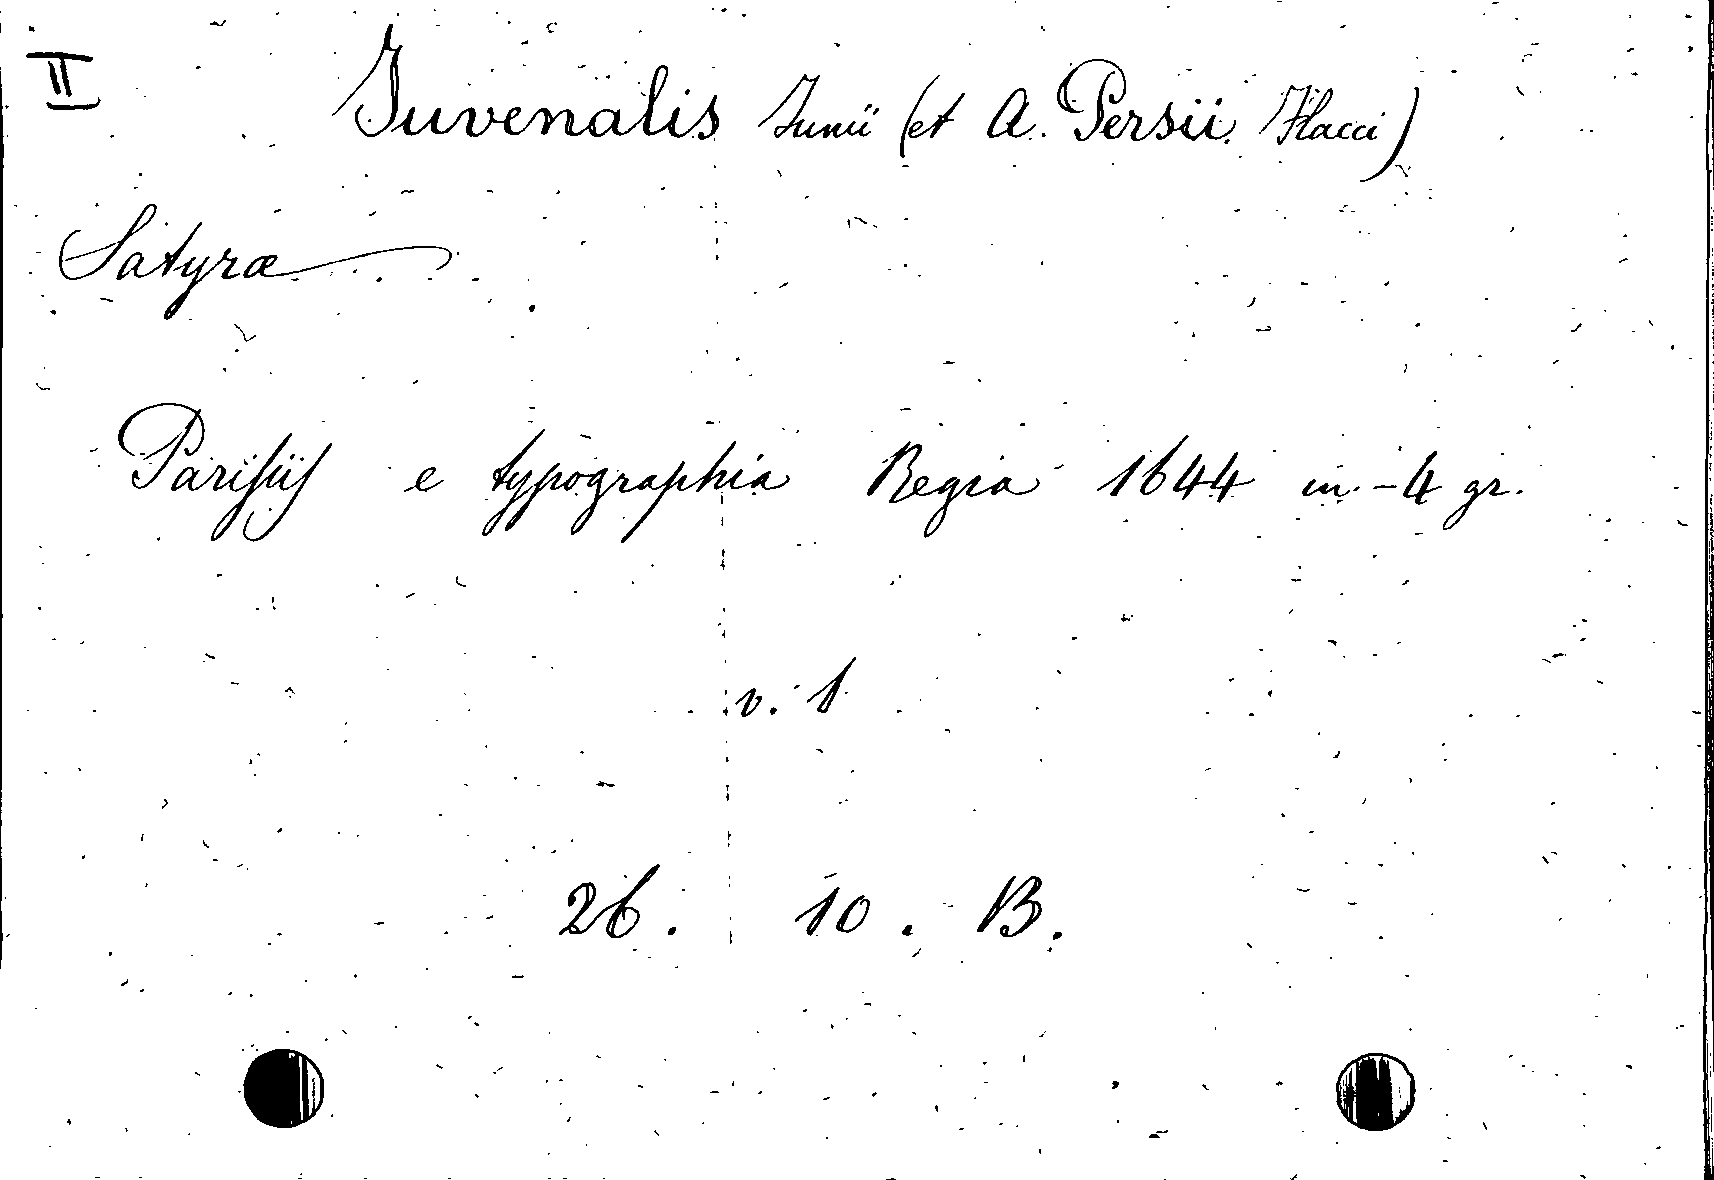 II
Juvenalis Junii (et A. Persii Flacci)
Satyræ
Parisiis e typographia Regia 1644 in-4 gr.
v. 1
26. 10. B.